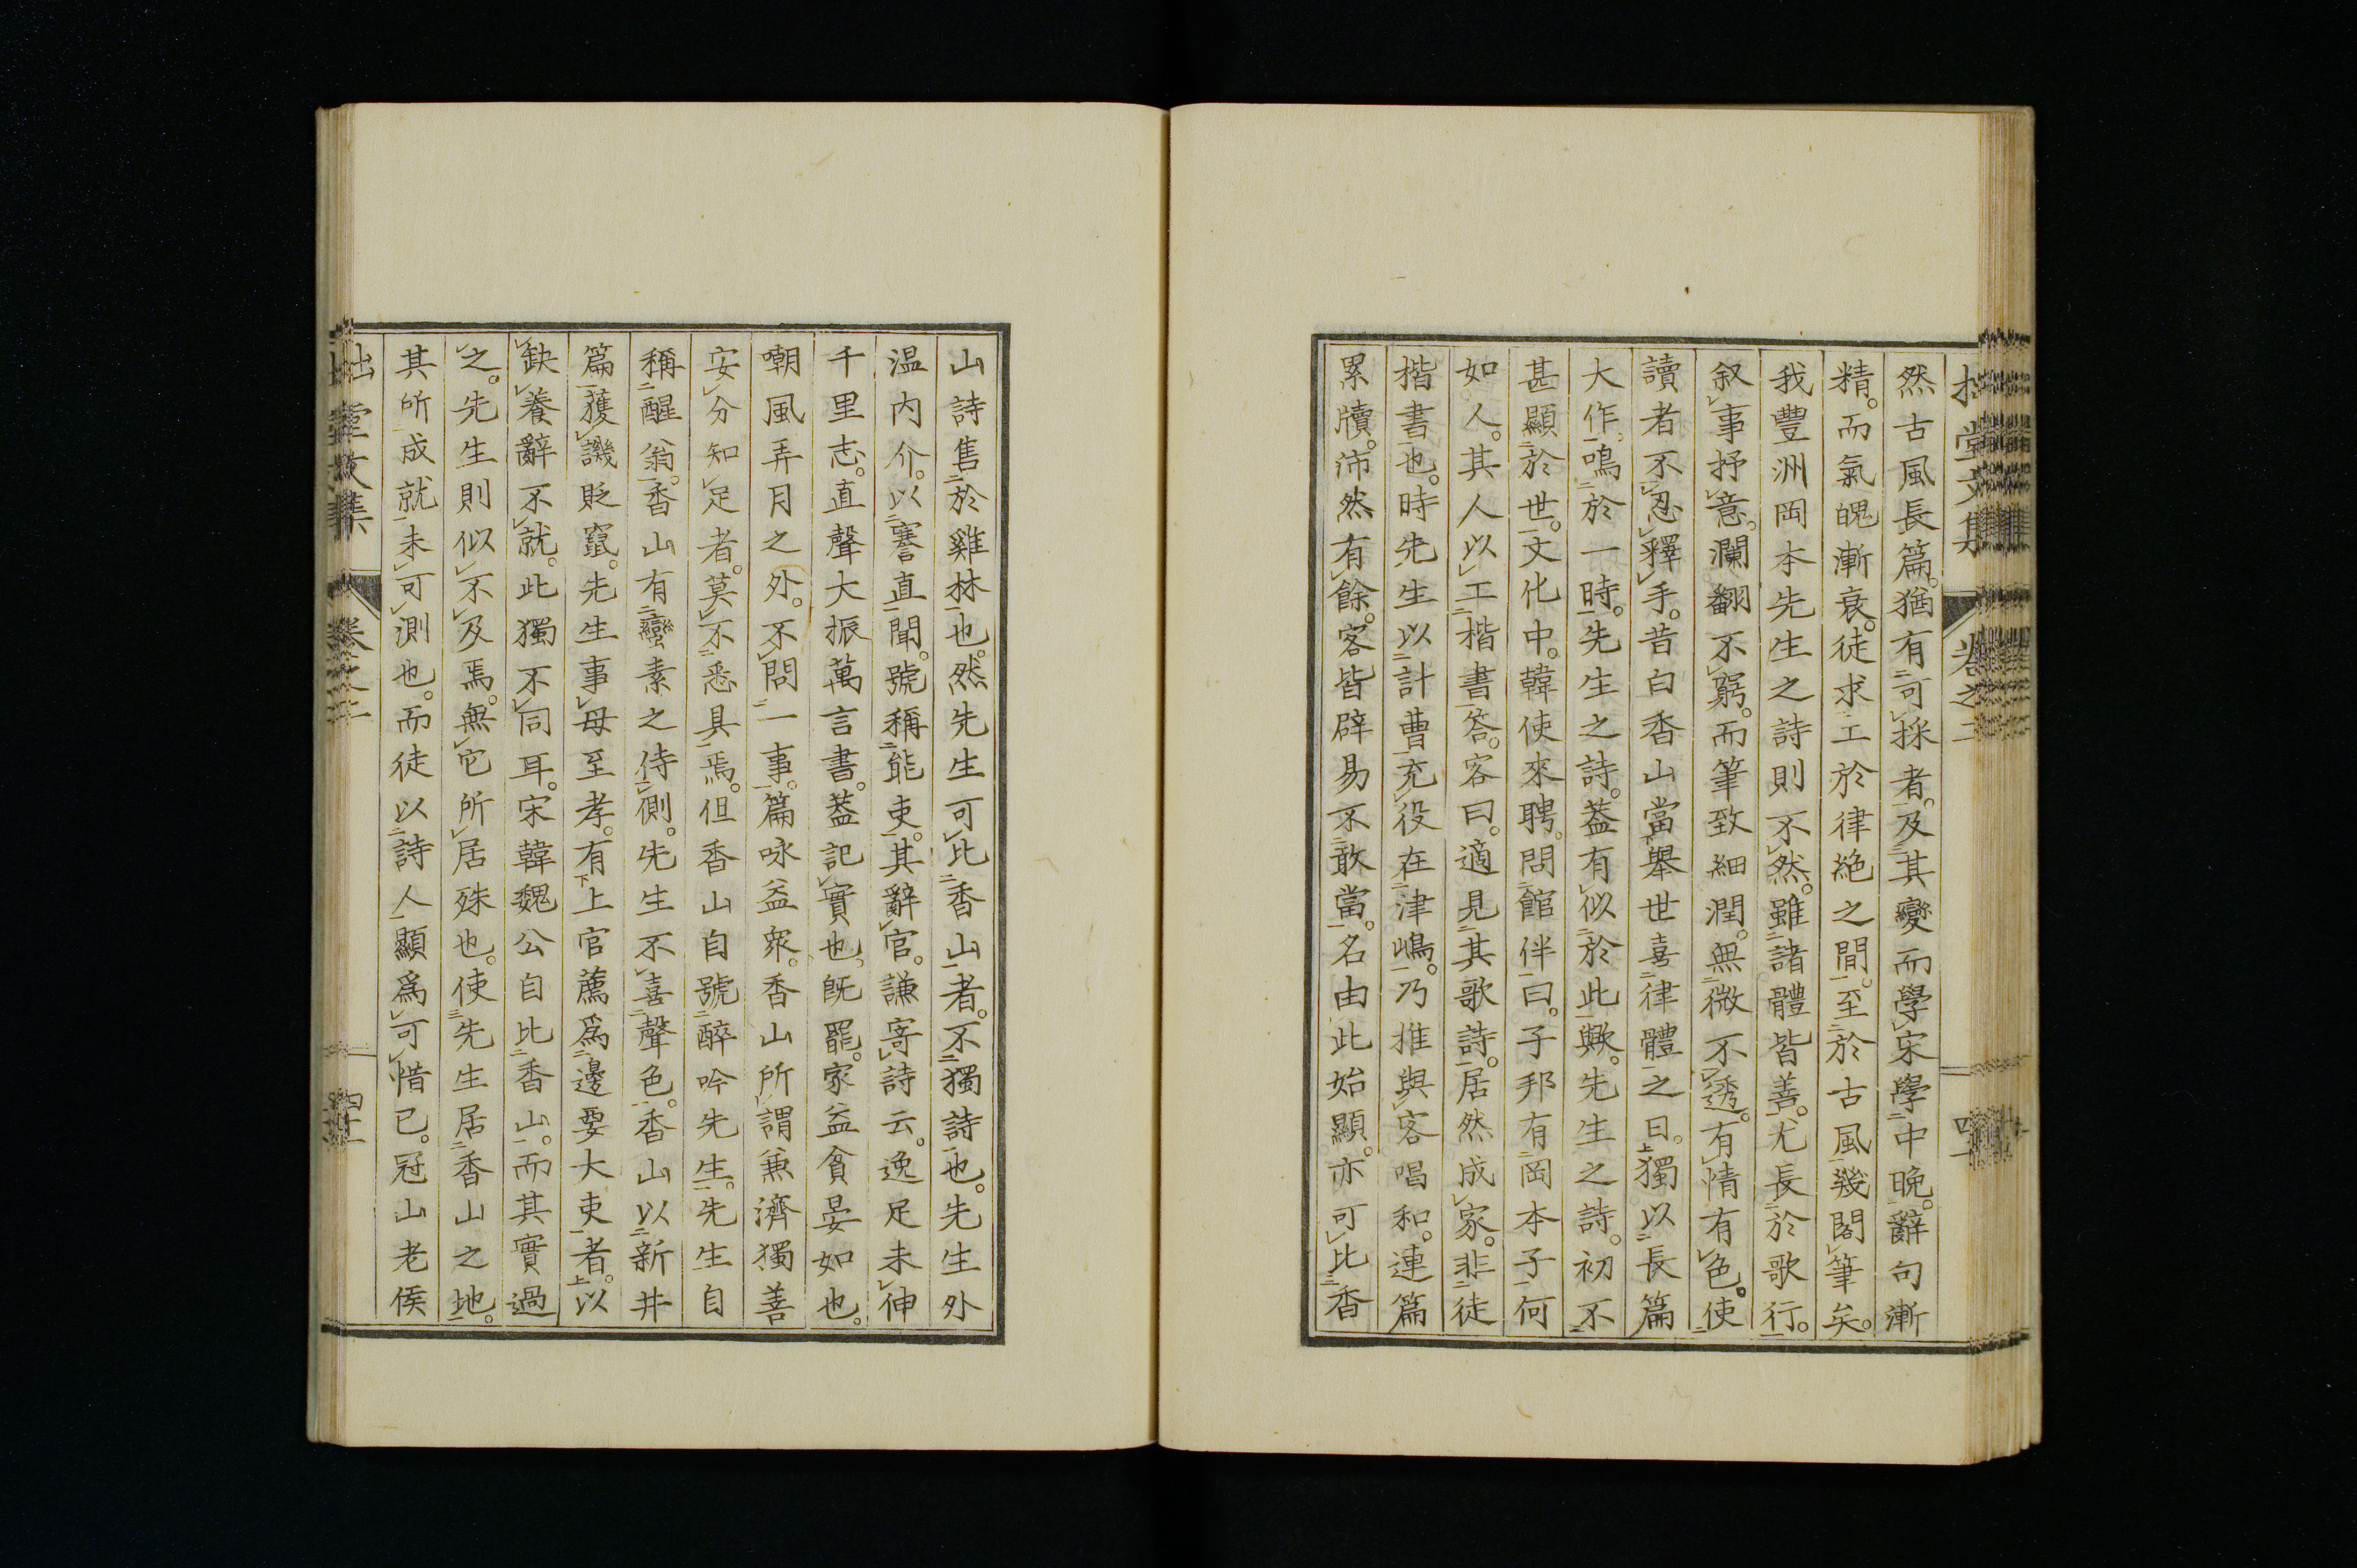 拙堂文集 卷之二 四十一
然古風長篇。猶有可採者。及其變而學宋學中晚。辭句漸
精。而氣魄漸衰。徒求工於律絶之間。至於古風幾閣筆矣。
我豐洲岡本先生之詩則不然。雖諸體皆善。尤長於歌行。
叙事抒意。瀾翻不窮。而筆致細潤。無微不透。有情有色。使
讀者不忍釋手。昔白香山當擧世喜律體之日。獨以長篇
大作。鳴於一時。先生之詩。葢有似於此歟。先生之詩。初不
甚顯於世。文化中。韓使來聘。問館伴曰。子邦有岡本子何
如人。其人以工楷書答。客曰。適見其歌詩。居然成家。非徒
楷書也。時先生以計曹充役在津嶋。乃推與客唱和。連篇
累牘。沛然有餘。客皆辟易不敢當。名由此始顯。亦可比香
山詩售於雞林也。然先生可比香山者。不獨詩也。先生外
温内介。以謇直聞。號稱能吏。其辭官。謙寄詩云。逸足未伸
千里志。直聲大振萬言書。葢記實也。既罷。家益貧晏如也。
嘲風弄月之外。不問一事。篇咏益衆。香山所謂兼濟獨善
安分知足者。莫不悉具焉。但香山自號醉吟先生。先生自
稱醒翁。香山有蠻素之侍側。先生不喜聲色。香山以新井
篇獲譏貶竄。先生事母至孝。有上官薦爲邊要大吏者。以
缺養辭不就。此獨不同耳。宋韓魏公自比香山。而其實過
之。先生則似不及焉。無它所居殊也。使先生居香山之地。
其所成就未可測也。而徒以詩人顯爲可惜已。冠山老侯
拙堂文集 卷之二